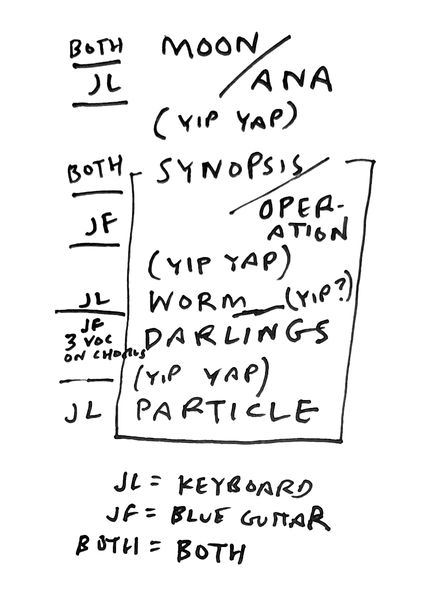 BOTH MOON/
JL ANA
(YIP YAP)
BOTH SYNOPSIS/
JF OPER-
ATION
(YIP YAP)
JL WORM__(YIP?)
JF DARLINGS
3 VOC
ON CHORUS
(YIP YAP)
JL PARTICLE
JL = KEYBOARD
JF = BLUE GUITAR
BOTH = BOTH